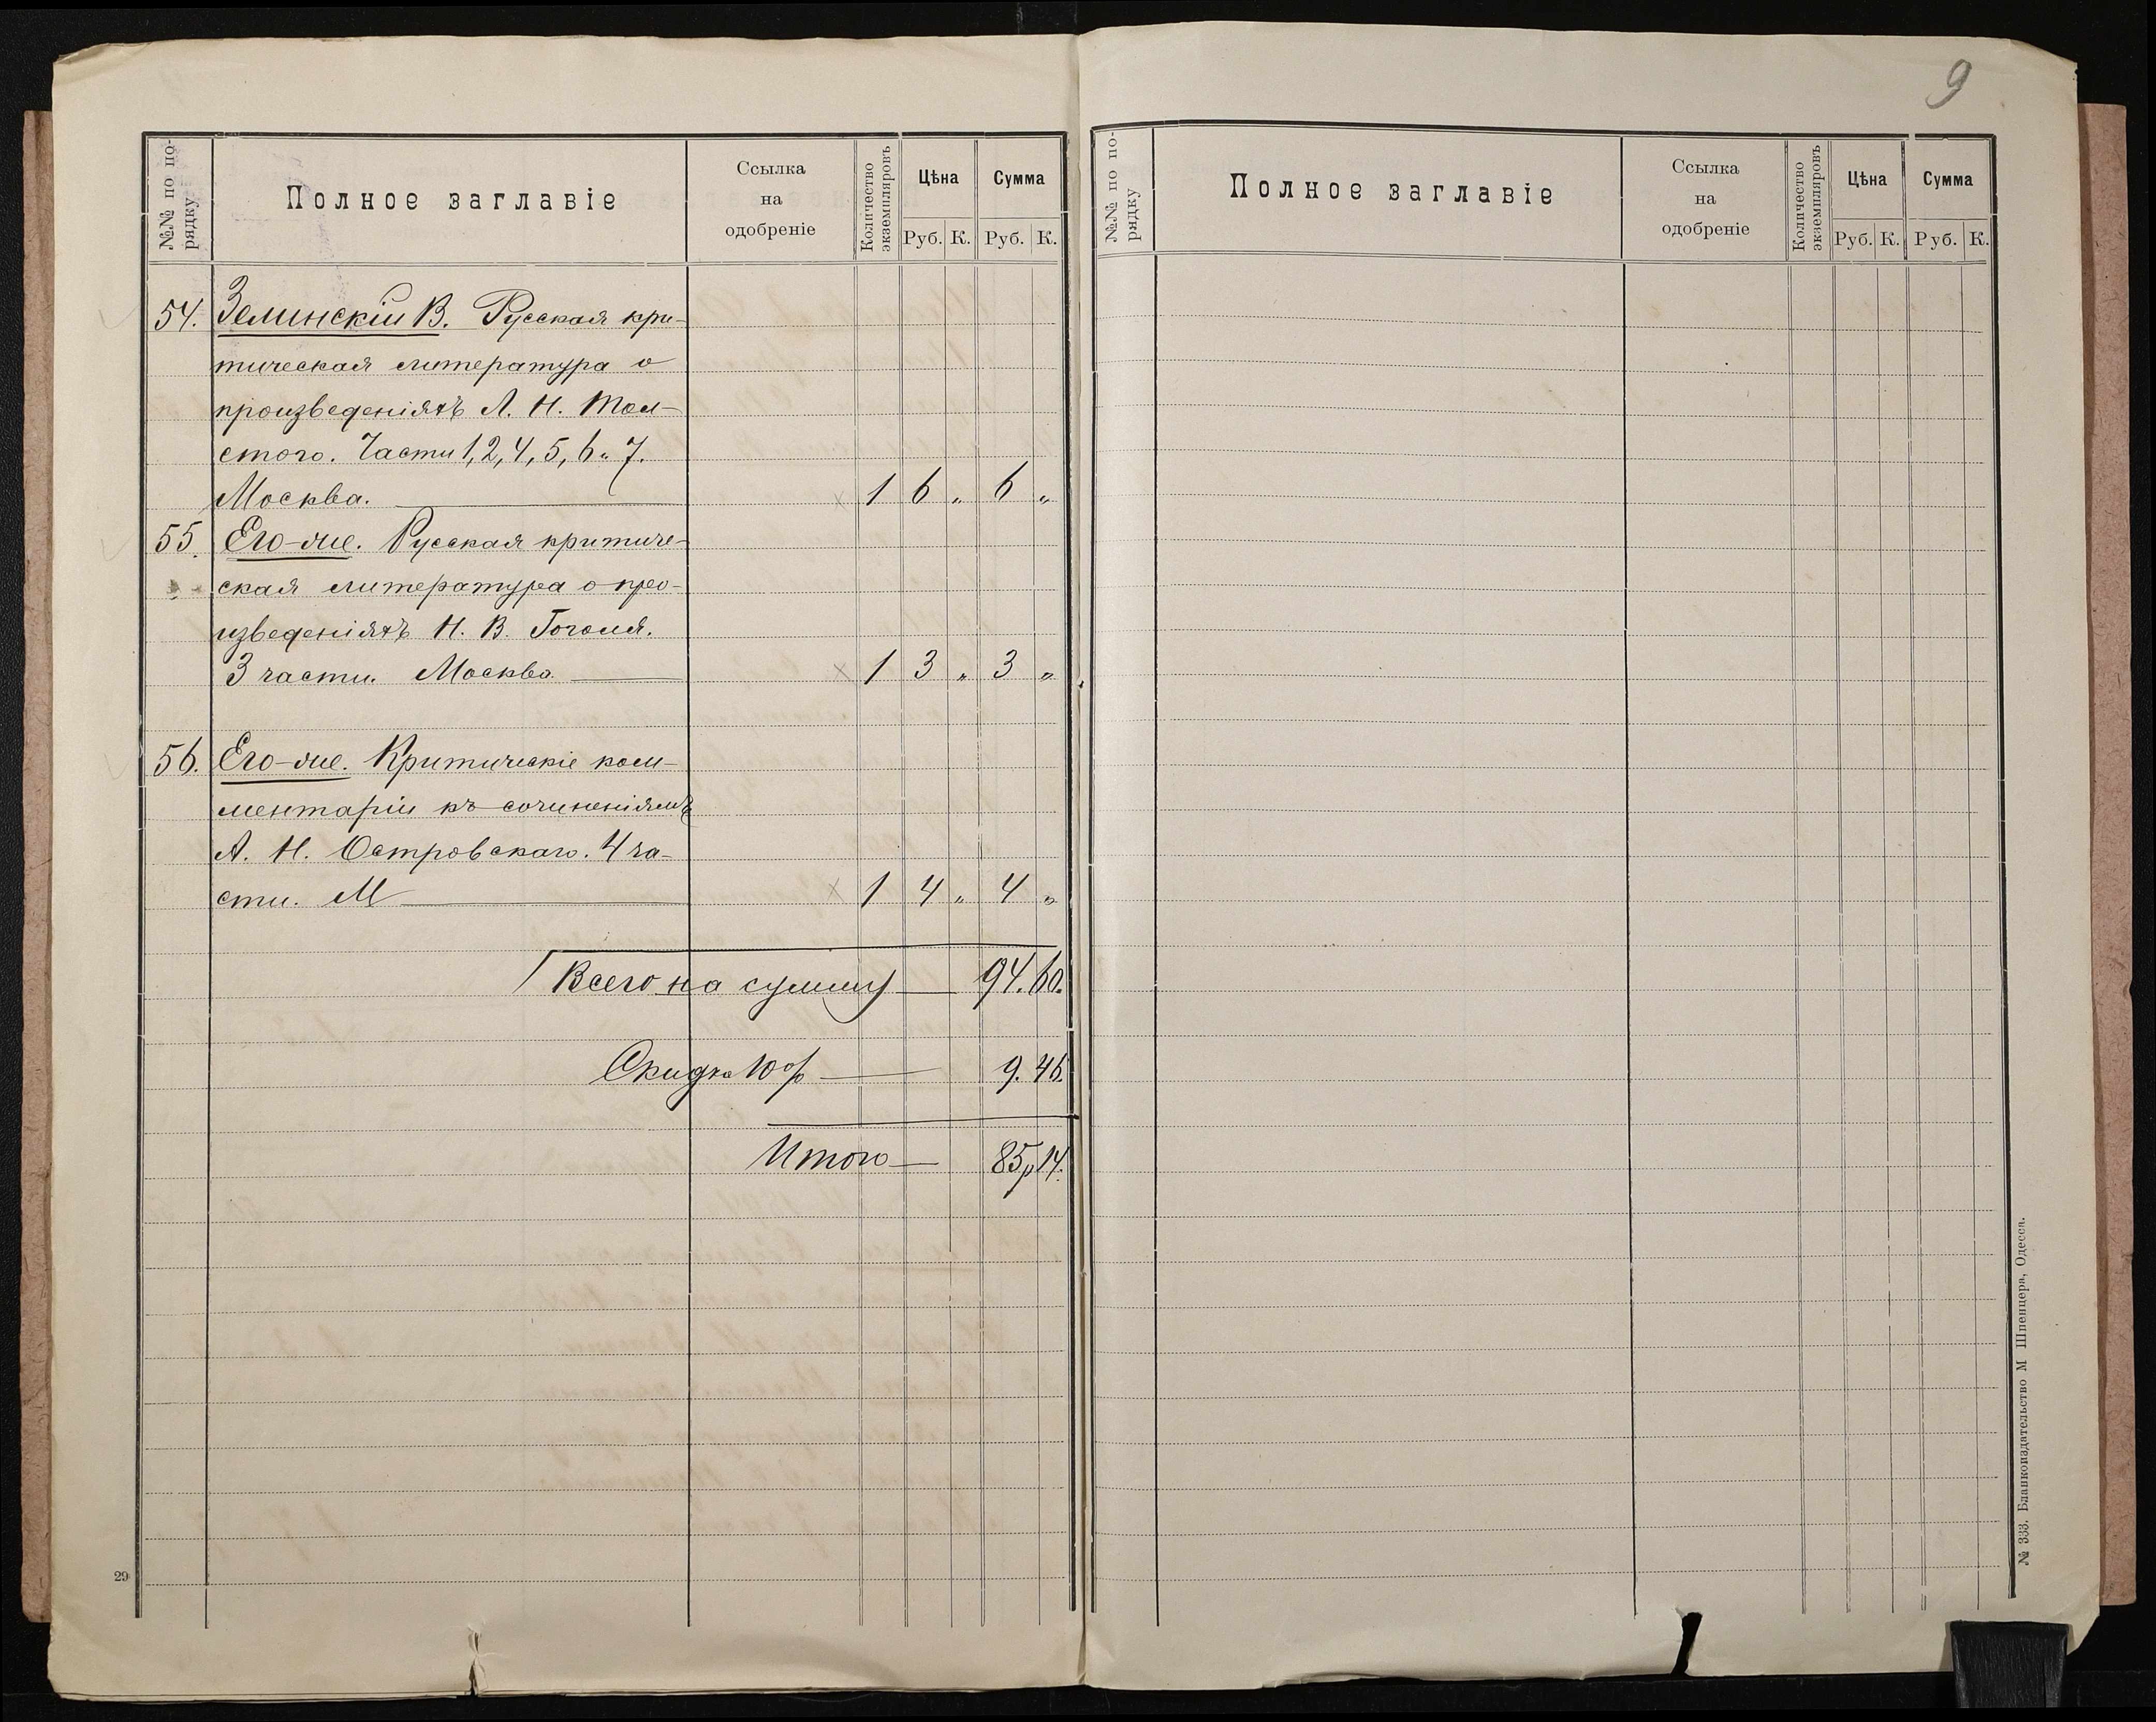 №№ по по-
рядку
Полное заглавіе
Ссылка
на
одобреніе
Количество
экземпляровъ
Цѣна
Сумма
Руб. К. Руб. К.
54. Зелинскій В. Русская кри-
тическая литература о
произведеніяхъ Л. Н. Тол-
стого. Части 1, 2, 4, 5, 6 и 7.
Москва. 1 6 „ 6 „
55. Его-же. Русская критиче-
ская литература о про-
изведеніяхъ Н. В. Гоголя.
3 части. Москва 1 3 „ 3 „
56. Его-же. Критическіе ком-
ментаріи къ сочиненіямъ
А. Н. Островскаго. 4 ча-
сти. М 1 4 „ 4 „
Всего на сумму 94. 60.
Скидка 10% 9. 46.
Итого 85 р 14.
29
9
№№ по по-
рядку
Полное заглавіе
Ссылка
на
одобреніе
Количество
экземпляровъ
Цѣна
Сумма
Руб. К. Руб. К.
№ 333. Бланкоиздательство М Шпенцера, Одесса.